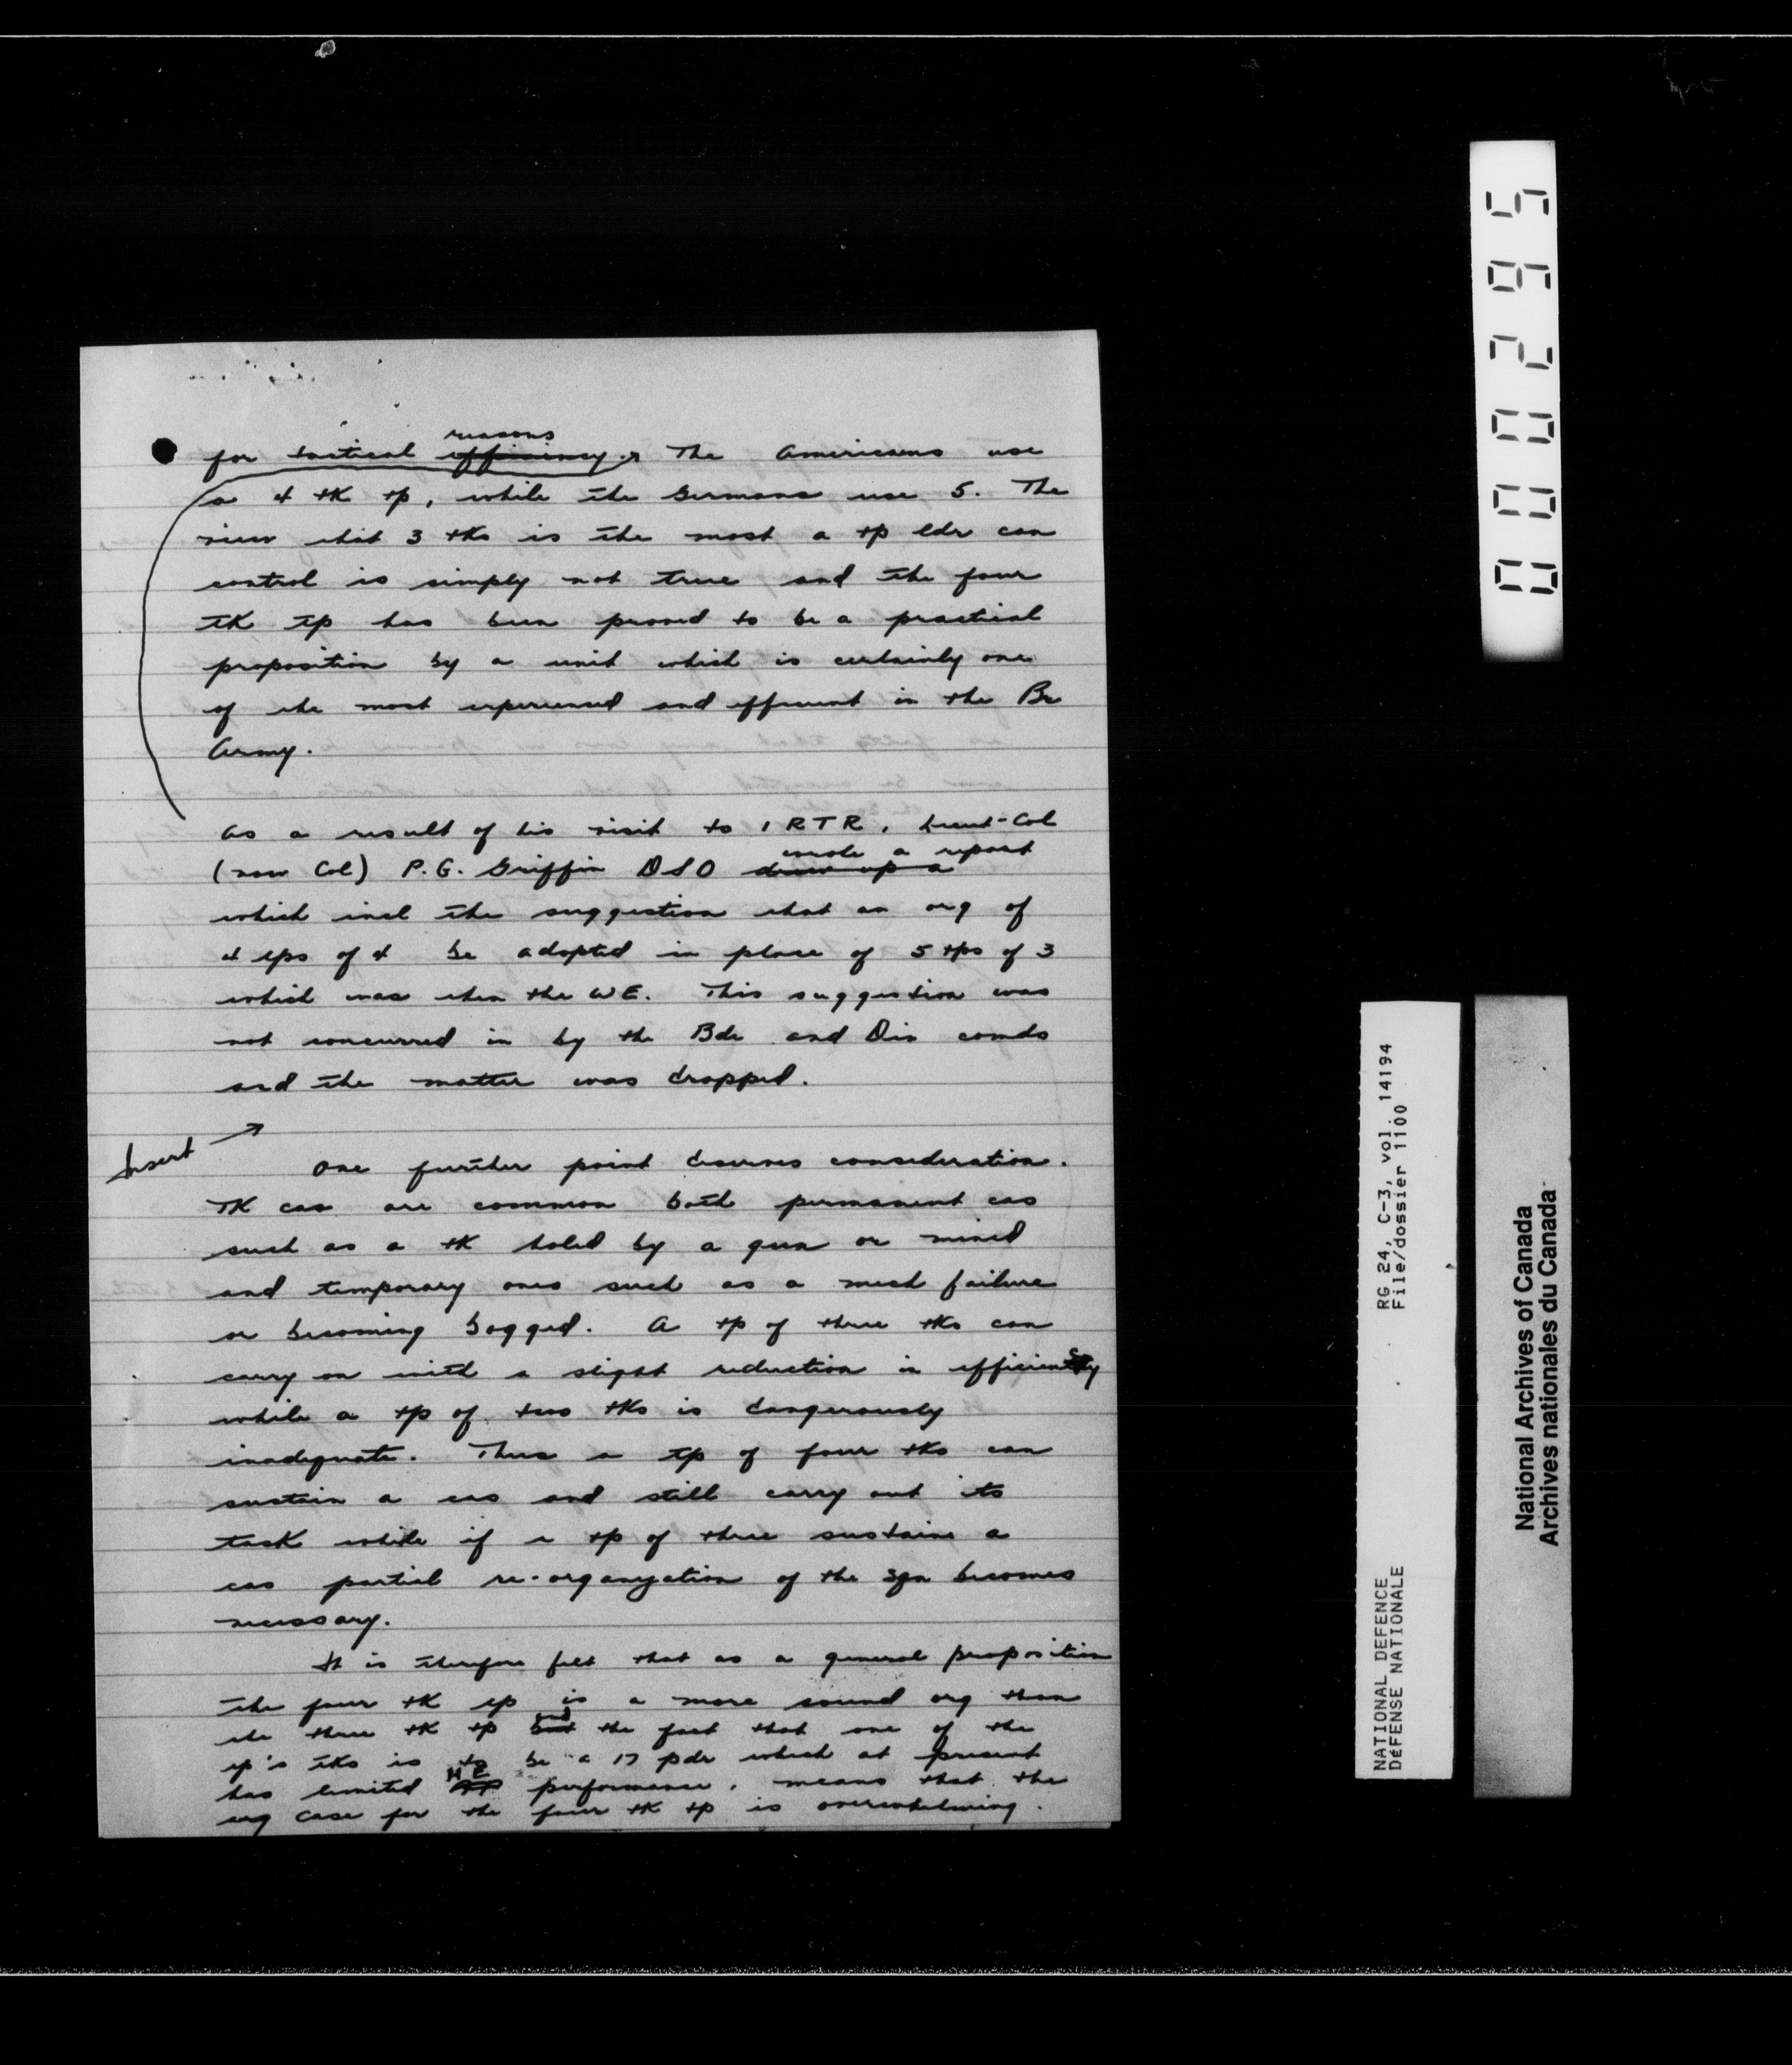 for tactical reasons efficiency. The Americans use
a 4 tk tp, while the Germans use 5. The
view that 3 tks is the most a tp ldr can
control is simply not true and the four
tk tp has been proved to be a practical
proposition by a unit which is certainly one
of the most experienced and efficient in the Br
Army.
As a result of his visit to 1 RTR, Lieut-Col
(now Col) P.G. Griffin DSO drew up a wrote a report
which incl the suggestion that an org of
4 tps of 4 be adopted in place of 5 tps of 3
which was then the WE. This suggestion was
not concurred in by the Bde and Div comds
and the matter was dropped.
Insert →
One further point deserves consideration.
Tk cas are common both permanent cas
such as a tk holed by a gun or mined
and temporary ones such as a mech failure
or becoming bogged. A tp of three tks can
carry on with a slight reduction in efficiency
while a tp of two tks is dangerously
inadequate. Thus a tp of four tks can
sustain a cas and still carry out its
task while if a tp of three sustains a
cas partial re-organization of the sqn becomes
necessary.
It is therefore felt that as a general proposition
the four tk tp is a more sound org than
the three tk tp but and the fact that one of the
tp's tks is to be a 17 pdr which at present
has limited AP HE performance, means that the
case for the four tk tp is overwhelming.
0000295
RG 24, C-3, vol. 14194
File/dossier 1100
NATIONAL DEFENCE
DéFENSE NATIONALE
National Archives of Canada
Archives nationales du Canada